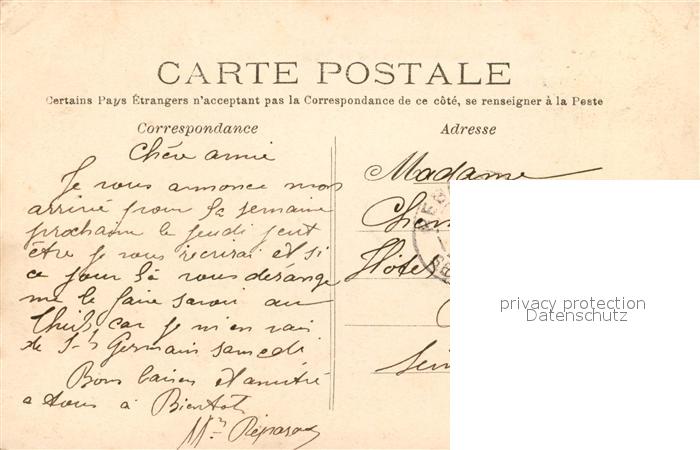 CARTE POSTALE
Certains Pays Étrangers n'acceptant pas la Correspondance de ce côté, se renseigner à la Poste
Correspondance
Chère amie
Je vous annonce mon
arrivé pour la semaine
prochaine le jeudi peut
être je vous recrirai et si
ce jour là vous derange
me le faire savoir au
car je m'en vais
de St Germain samedi
Bons baisers et amitié
a tous a Bientot
Adresse
Madame
Hôtel
privacy protection
Datenschutz